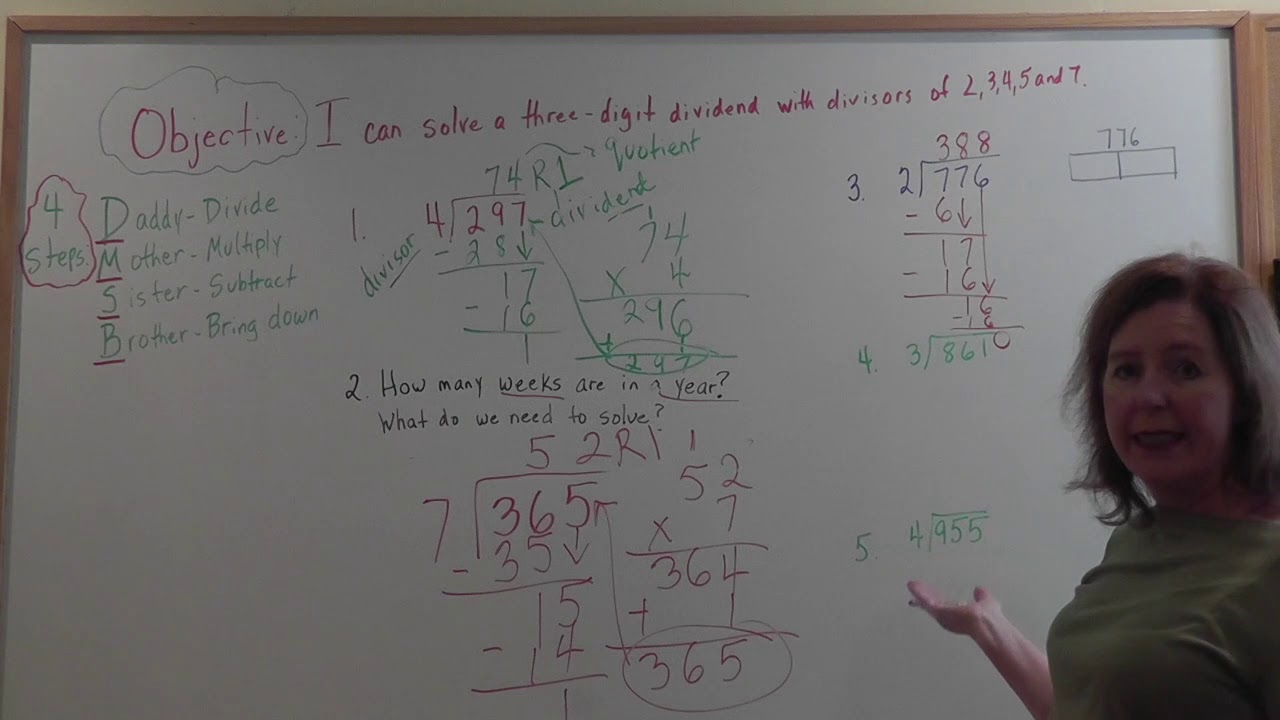 Objective: I can solve a three-digit dividend with divisors of 2,3,4,5 and 7.
4 Steps:
Daddy-Divide
Mother-Multiply
Sister-Subtract
Brother-Bring down
1.
74R1
quotient
4)297
dividend
divisor
-28
17
-16
1
1
74
x 4
296
+ 1
297
2. How many weeks are in a year?
What do we need to solve?
52R1
7)365
-35
15
-14
1
1
52
x 7
364
+ 1
365
3.
388
2)776
-6
17
-16
16
-16
0
776
4. 3)861
5. 4)955